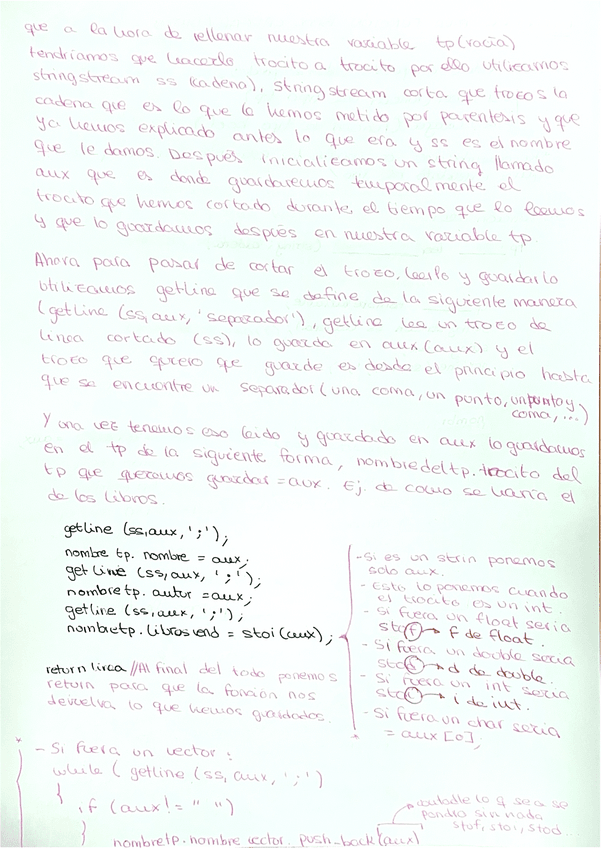 que a la hora de rellenar nuestra variable tp (vacía)
tendríamos que hacerlo trocito a trocito por ello utilizamos
stringstream ss (cadena), stringstream corta que trozos la
cadena que es lo que le hemos metido por parentesis y que
ya hemos explicado antes lo que era y ss es el nombre
que le damos. Después inicializamos un string llamado
aux que es donde guardaremos temporalmente el
trocito que hemos cortado durante el tiempo que lo leemos
y que lo guardamos después en nuestra variable tp.
Ahora para pasar de cortar el trozo, leerlo y guardarlo
utilizamos getline que se define de la siguiente manera
(getline (ss, aux, 'separador'), getline lee un trozo de
linea cortado (ss), lo guarda en aux (aux) y el
trozo que quiero que guarde es desde el principio hasta
que se encuentre un separador (una coma, un punto, un punto y
coma, ...)
Y una vez tenemos eso leido y guardado en aux lo guardamos
en el tp de la siguiente forma, nombredeltp.trocito del
tp que queramos guardar = aux. Ej. de como se haría el
de los libros.
getline (ss,aux,';');
nombre tp. nombre = aux;
getline (ss,aux,';');
nombretp. autor = aux;
getline (ss,aux,';');
nombretp. librosvend = stoi (aux);
return lirca //Al final del todo ponemos
return para que la función nos
devuelva lo que hemos guardado.
- Si es un strin ponemos
solo aux.
- Esto lo ponemos cuando
el trocito es un int.
- Si fuera un float seria
stof → f de float.
- Si fuera un double seria
stod → d de double.
- Si fuera un int seria
stoi → i de int.
- Si fuera un char seria
= aux [0];
* - Si fuera un vector:
while ( getline (ss, aux, ';')
{
if (aux != " ")
}
nombretp. nombre vector. push_back (aux)
lo q sea se
pondria sin nada
stof, stoi, stod...